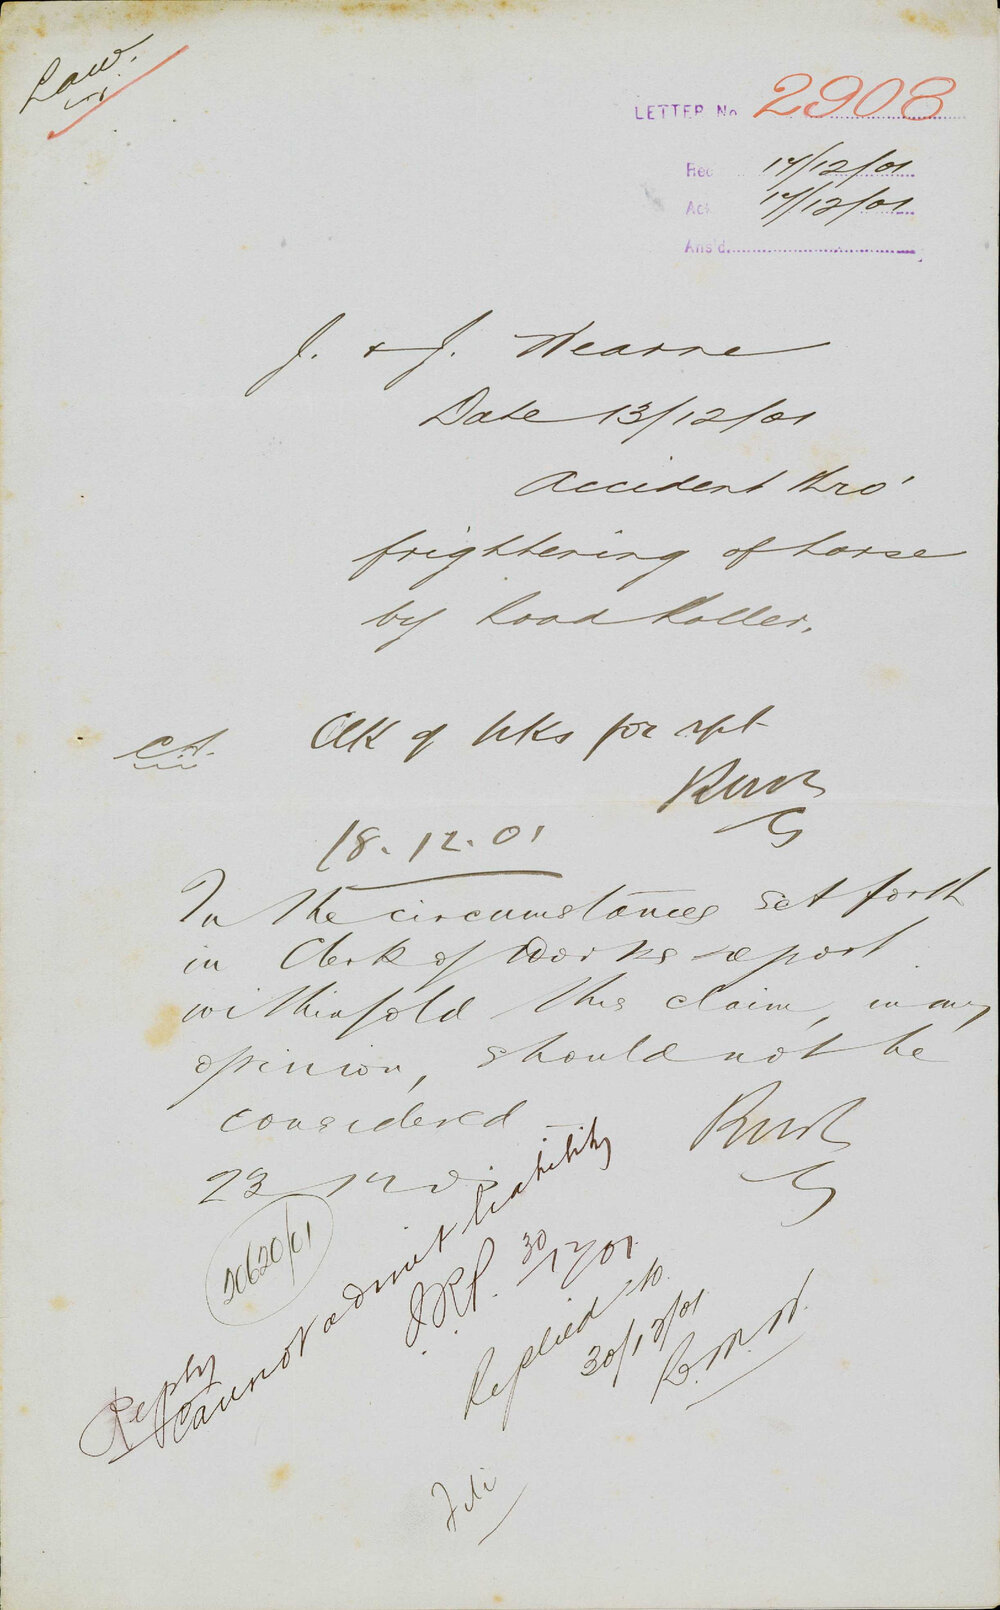 Law.
LETTER No 2908
Rec 17/12/01
Ack 17/12/01
Ans'd.
J. & J. Hearne
Date 13/12/01
Accident thro'
frightening of horse
by Road Roller.
Clk of Wks for rpt
18.12.01
In the circumstances set forth
in Clerk of Works report
withinfold this claim, in my
opinion, should not be
considered
23 12 01
20620/01
Reply
Cannot admit liability
30/12/01
Replied to
30/12/01
File